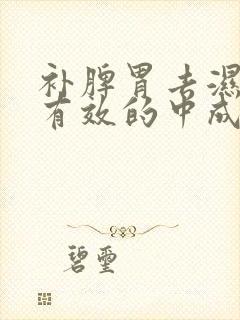 补脾胃去湿
有效的中成
碧玺